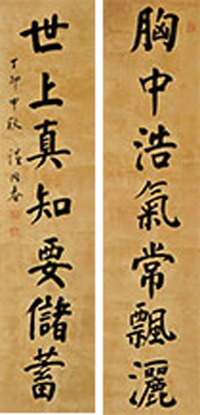 胸中浩氣常飄灑
世上真知要儲蓄
丁卯